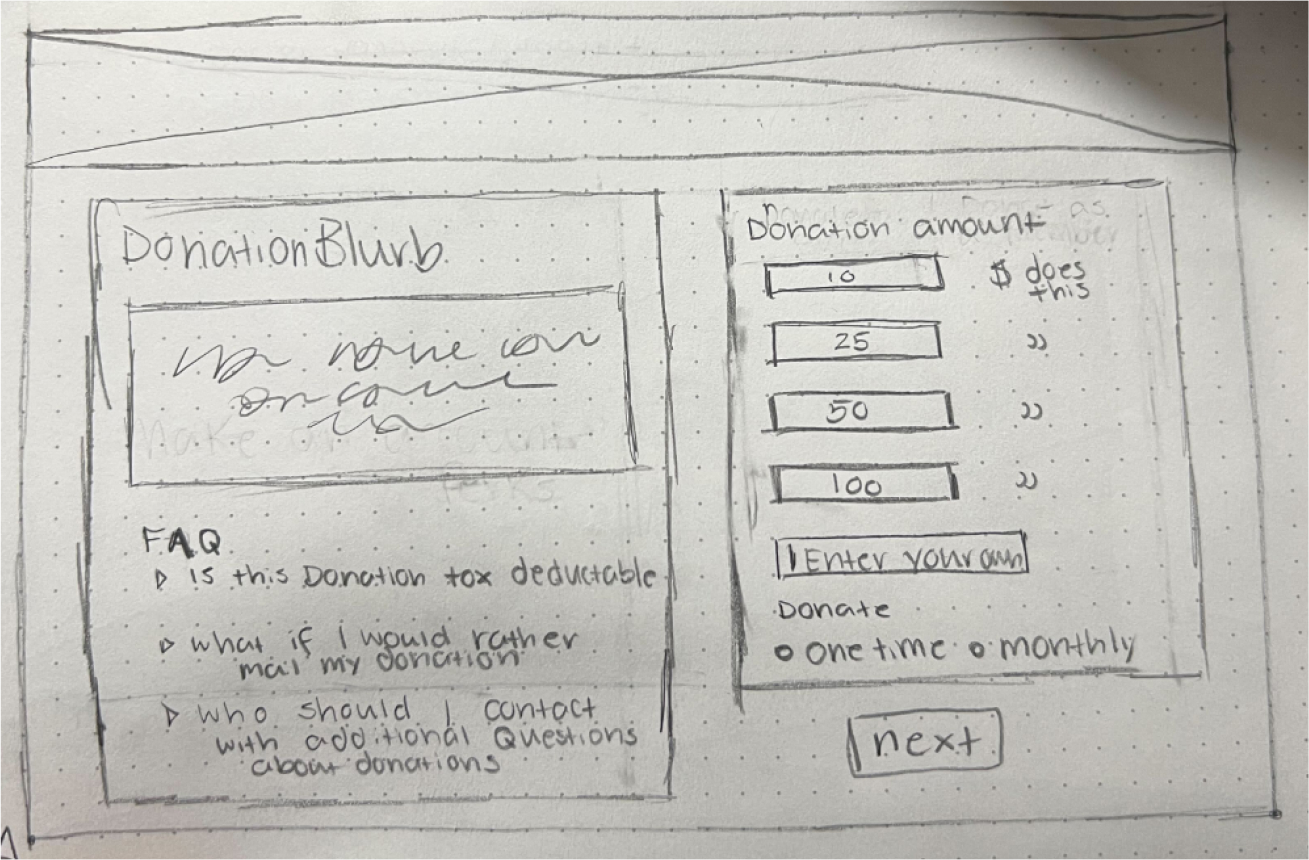 DonationBlurb
FAQ
▷ is this Donation tax deductable
▷ what if I would rather
mail my donation
▷ who should I contact
with additional Questions
about donations
Donation amount
10 $ does
this
25 "
50 "
100 "
Enter your own
Donate
○ one time ○ monthly
next